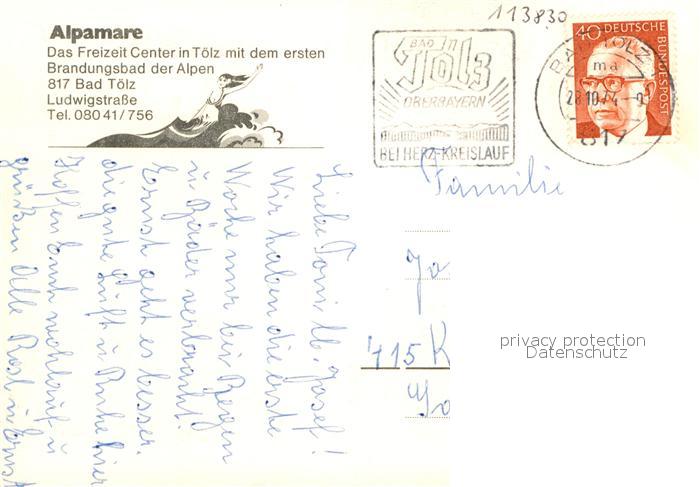 113830
Alpamare
Das Freizeit Center in Tölz mit dem ersten
Brandungsbad der Alpen
817 Bad Tölz
Ludwigstraße
Tel. 080 41/756
BAD
Tölz
OBERBAYERN
BEI HERZ-KREISLAUF
BAD TÖLZ
ma
28.10.74
817
40 DEUTSCHE
BUNDESPOST
Familie
Jo
415 K
privacy protection
Datenschutz
Liebe Toni, lb. Josef!
Wir haben die erste
Woche nur bei Regen
u. Bäder verbracht.
Ernst geht es besser.
die gute Luft u. Ruhe hier
Hoffen Euch wohlauf u.
grüßen Alle Rosl u. Ernst